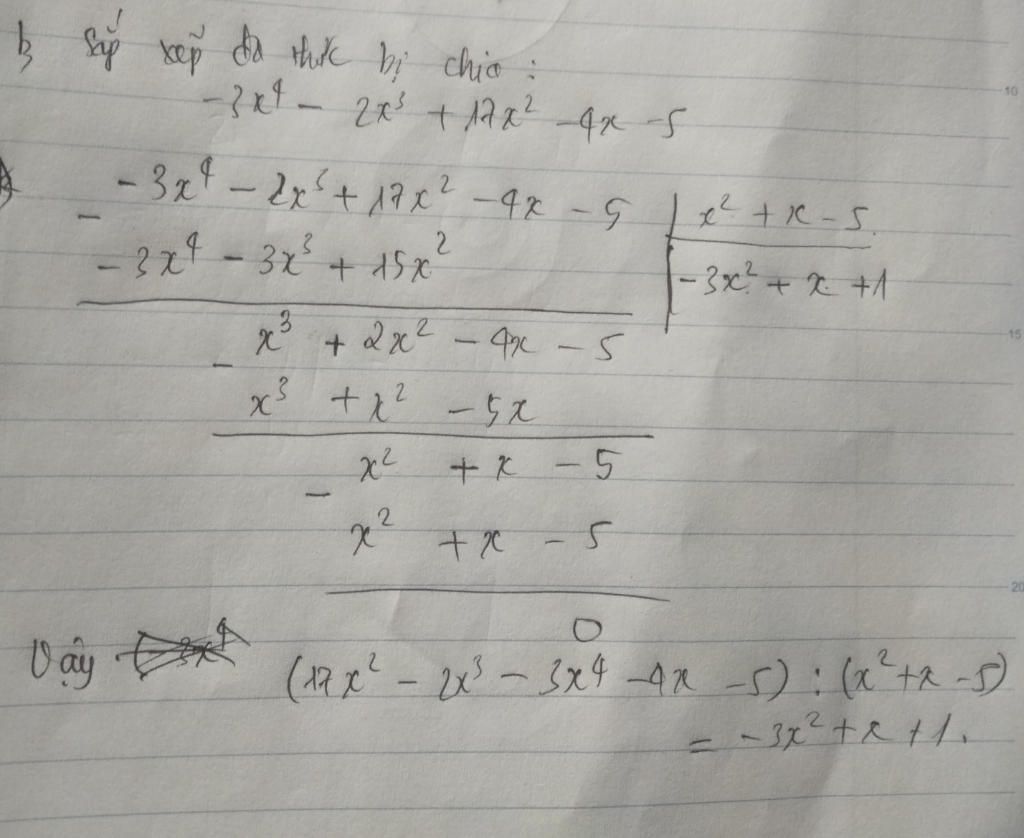 b, Sắp xếp đa thức bị chia :
-3x⁴ - 2x³ + 17x² - 4x - 5
- -3x⁴ - 2x³ + 17x² - 4x - 5 | x² + x - 5
-3x⁴ - 3x³ + 15x² | -3x² + x + 1
- x³ + 2x² - 4x - 5
x³ + x² - 5x
- x² + x - 5
x² + x - 5
0
Vậy (17x² - 2x³ - 3x⁴ - 4x - 5) : (x² + x - 5)
= -3x² + x + 1.
10
15
20